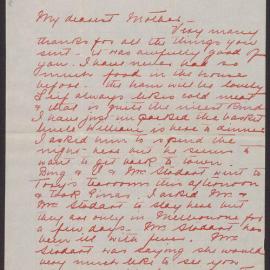 My dearest Mother,
Very many
thanks for all the things you
sent. It was awfully good of
you. I have never had so
much food in the house
before. The ham will be lovely
Leif always likes cold meat
& that is quite the nicest kind
I have just unpacked the basket
Uncle William is here to dinner
I asked him to spend the
night here but he seems to
want to get back to town.
& I & Mr Stodart went to
tearooms this afternoon
I asked Mr &
Mrs Stodart to stay here but
they are only in Melbourne for
a few days. Mr Stodart has
been ill with
Stodart was saying she would
very much like to see you